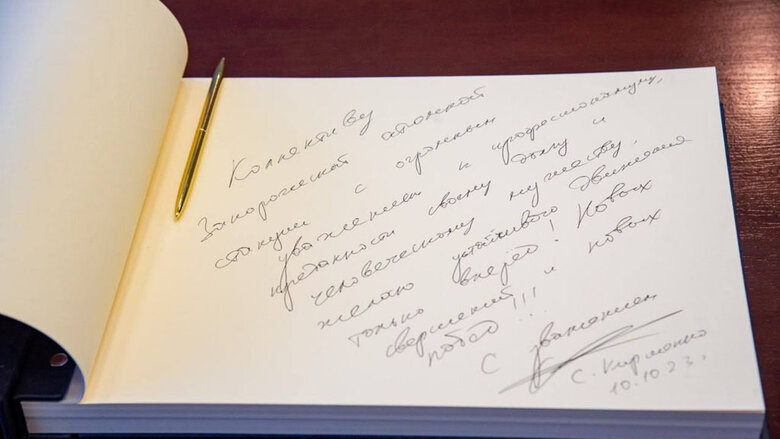 Коллективу
Запорожской атомной
станции с огромным
уважением к профессионализму,
преданности своему делу и
человеческому мужеству.
желаю устойчивого движения
только вперёд! Новых
свершений и новых
побед!!!
С уважением
С. Кириенко
10.10.23г.